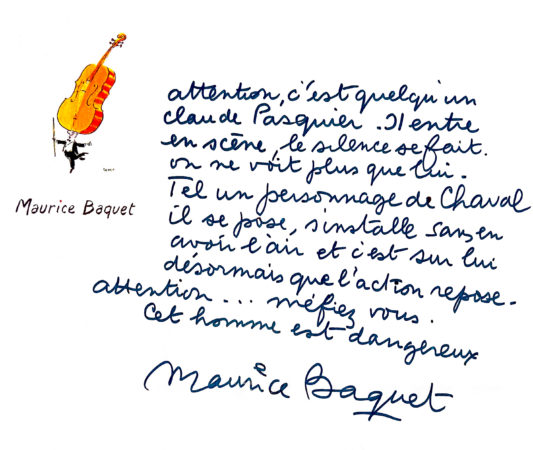 Maurice Baquet
attention, c'est quelqu'un
claude Pasquier. Il entre
en scène, le silence se fait.
on ne voit plus que lui.
Tel un personnage de Chaval
il se pose, s'installe sans en
avoir l'air et c'est sur lui
désormais que l'action repose.
attention ... méfiez vous.
Cet homme est dangereux
Maurice Baquet